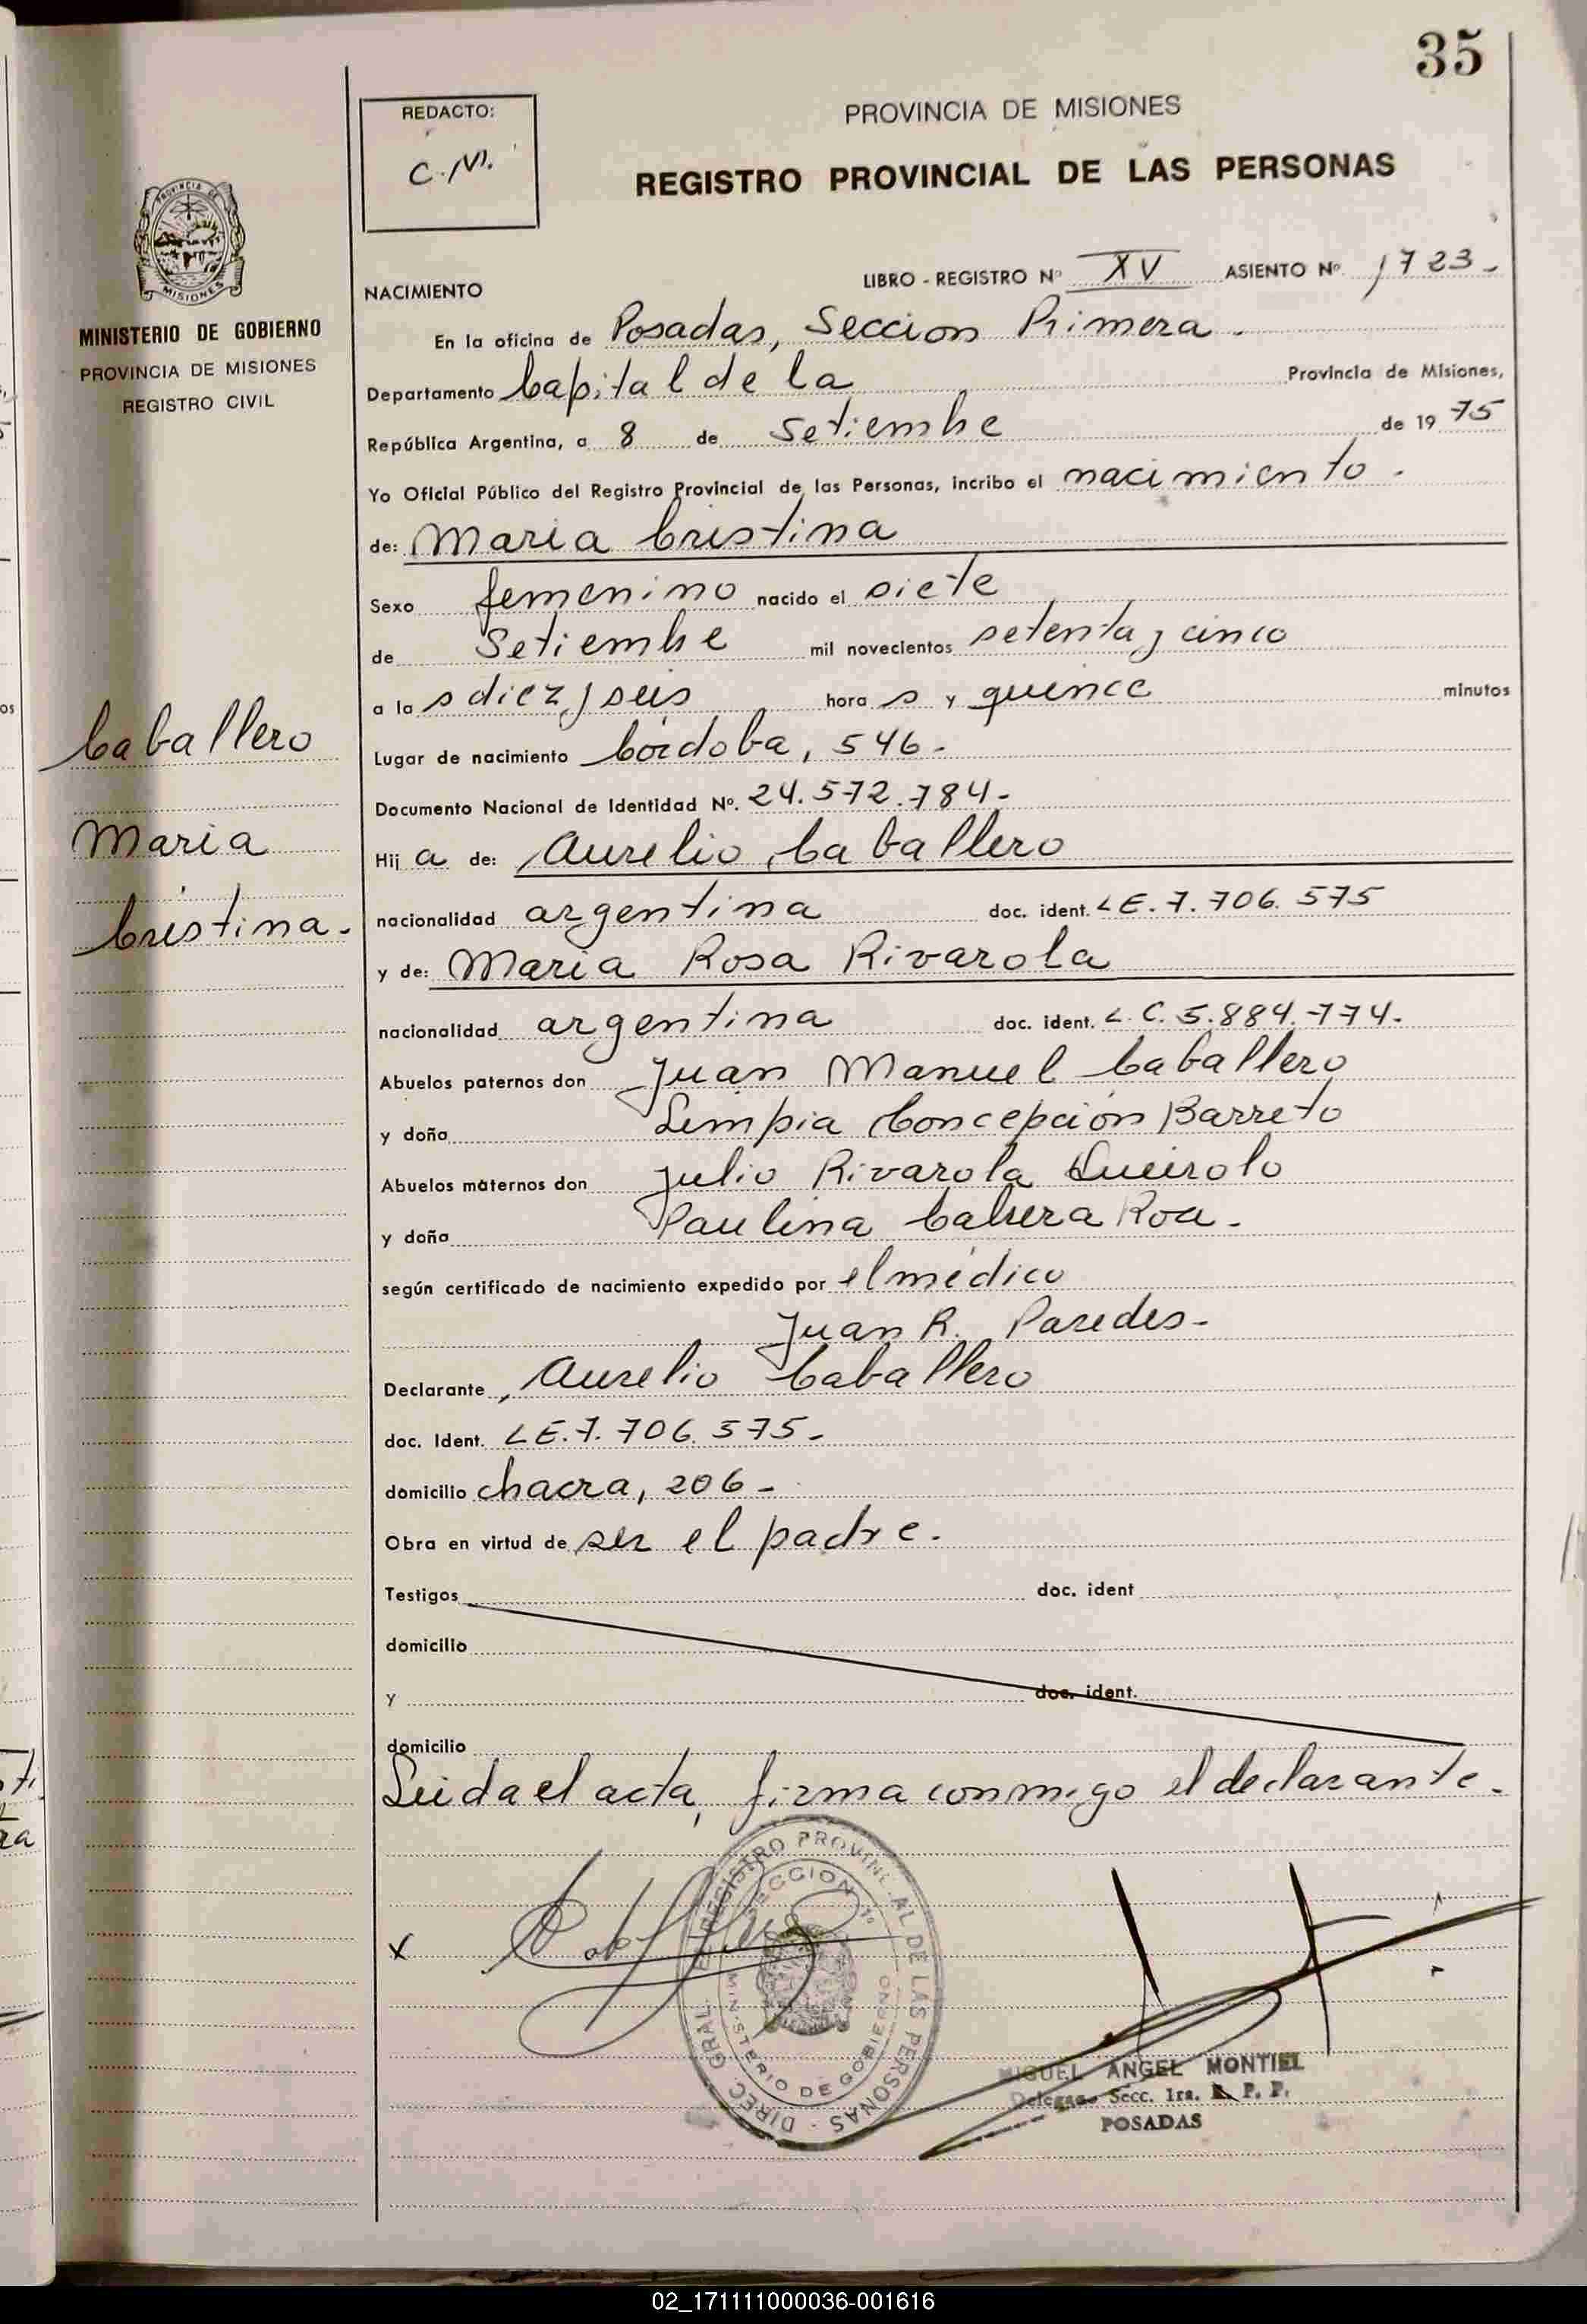 35
REDACTO:
C.M.
PROVINCIA DE MISIONES
REGISTRO PROVINCIAL DE LAS PERSONAS
MINISTERIO DE GOBIERNO
PROVINCIA DE MISIONES
REGISTRO CIVIL
NACIMIENTO
LIBRO - REGISTRO Nº XV ASIENTO Nº 1723-
En la oficina de Posadas, Seccion Primera.
Departamento Capital de la Provincia de Misiones,
República Argentina, a 8 de Setiembre de 1975
Yo Oficial Público del Registro Provincial de las Personas, incribo el nacimiento.
de: Maria Cristina
Sexo femenino nacido el siete
de Setiembre mil novecientos setenta y cinco
a las diez y seis horas y quince minutos
Caballero
Maria
Cristina.
Lugar de nacimiento Córdoba, 546-
Documento Nacional de Identidad Nº. 24.572.784-
Hija de: Aurelio Caballero
nacionalidad argentina doc. ident. LE.7.706.575
y de: Maria Rosa Rivarola
nacionalidad argentina doc. ident. L.C.5.884.774.
Abuelos paternos don Juan Manuel Caballero
y doña Limpia Concepción Barreto
Abuelos maternos don Julio Rivarola Queirolo
y doña Paulina Cabrera Roa.
según certificado de nacimiento expedido por el médico
Juan R. Paredes-
Declarante, Aurelio Caballero
doc. Ident. LE.7.706.575-
domicilio chacra, 206-
Obra en virtud de ser el padre.
Testigos doc. ident
domicilio
y doc. ident.
domicilio
Leida el acta, firma conmigo el declarante.
x
DIREC. GRAL. REGISTRO PROVINCIAL DE LAS PERSONAS
SECCION 1º
MINISTERIO DE GOBIERNO
MISIONES
MIGUEL ANGEL MONTIEL
Secc. 1ra. P. P.
POSADAS
02_171111000036-001616